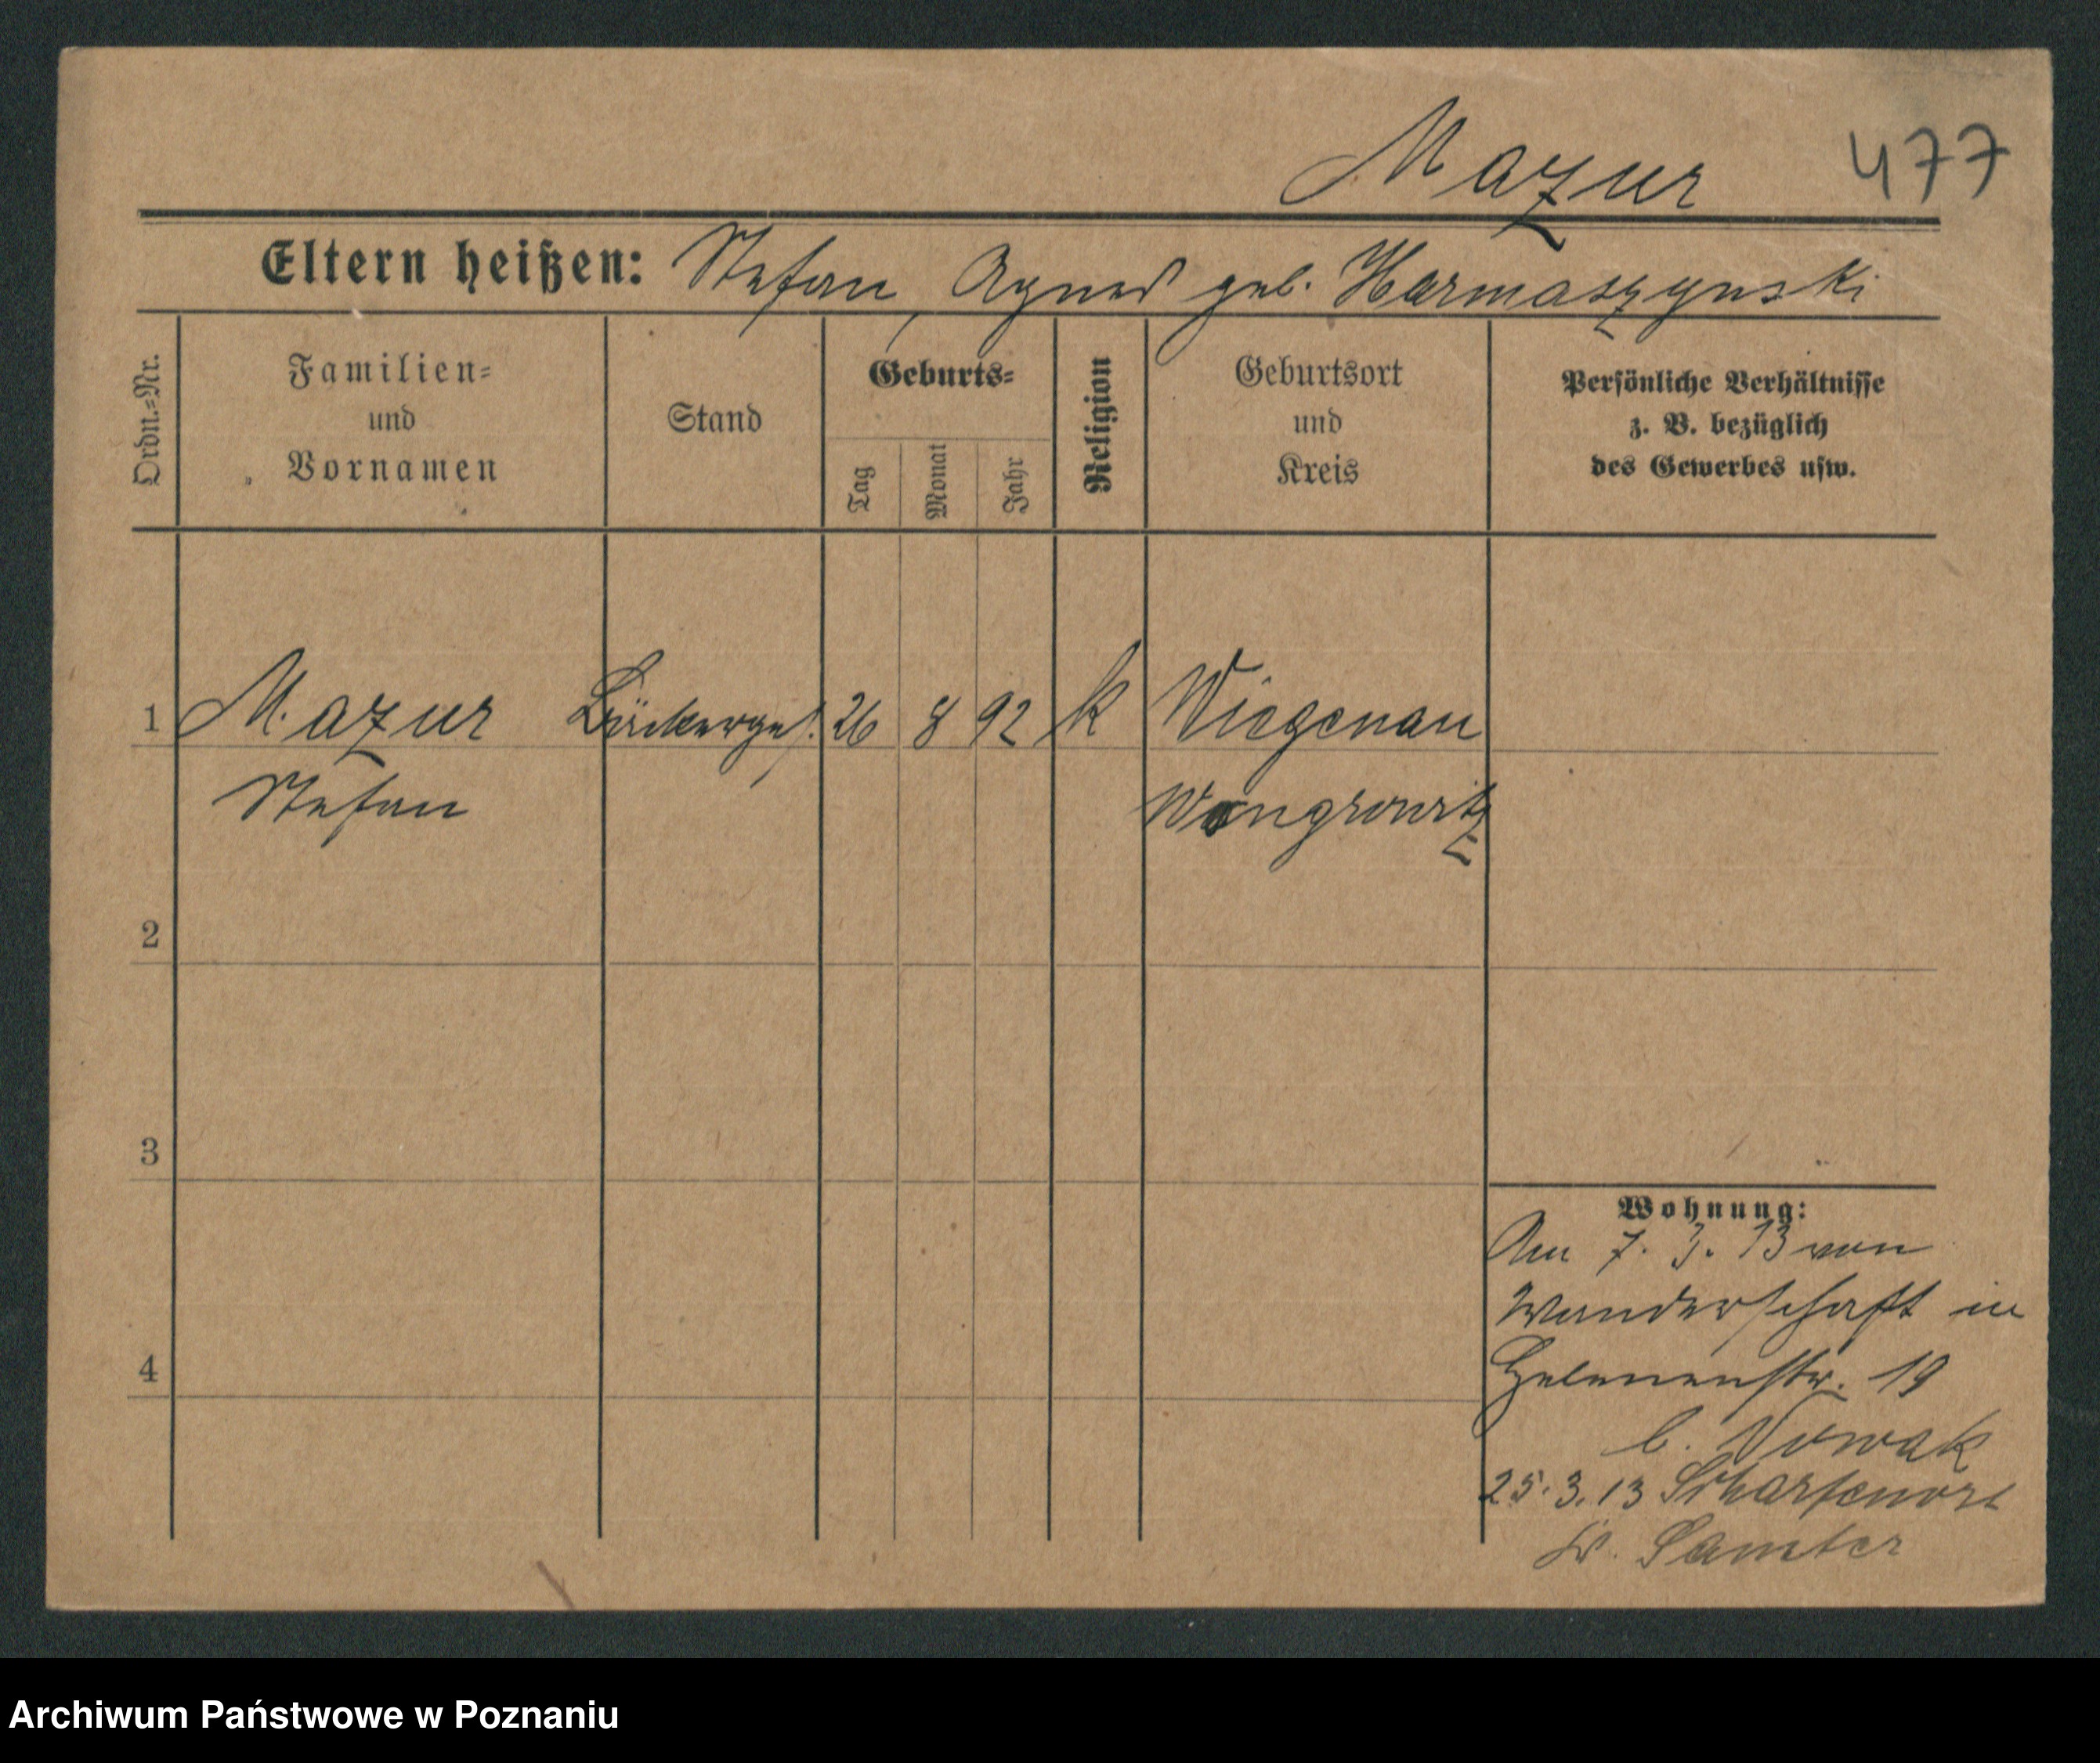 Mazur 477
Eltern heißen: Stefan, Agnes geb. Harmaszynski
Ordn.=Nr.
Familien=
und
Vornamen
Stand
Geburts=
Tag
Monat
Jahr
Religion
Geburtsort
und
Kreis
Persönliche Verhältnisse
z. B. bezüglich
des Gewerbes usw.
1 Mazur Bäckerges. 26 8 92 k Wiegenau
Stefan Wongrowitz
2
3
4
Wohnung:
Am 7. 3. 13 von
Wanderschaft in
Helenenstr. 19
b. Nowak
25.3.13 Scharfenort
Kr. Samter
Archiwum Państwowe w Poznaniu